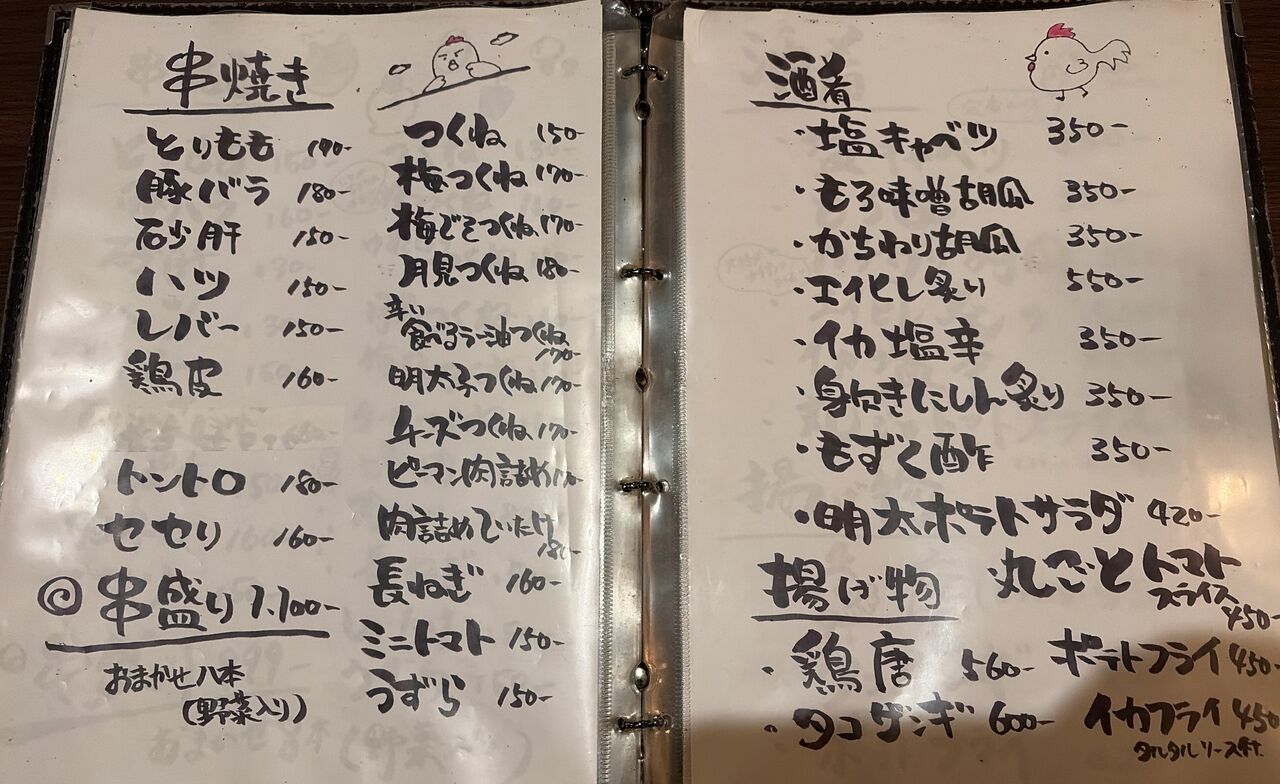 串焼き
とりもも 190-
豚バラ 180-
砂肝 150-
ハツ 150-
レバー 150-
鶏皮 160-
トントロ 180-
セセリ 160-
◎串盛り 1.100-
おまかせ八本
(野菜入り)
つくね 150-
梅つくね 170-
梅じそつくね 170-
月見つくね 180-
辛い
食べるラー油つくね
170-
明太子つくね 170-
チーズつくね 170-
ピーマン肉詰め 170-
肉詰めしいたけ
180-
長ねぎ 160-
ミニトマト 150-
うずら 150-
酒肴
・塩キャベツ 350-
・もろ味噌胡瓜 350-
・かちわり胡瓜 350-
・エイヒレ炙り 550-
・イカ塩辛 350-
・身欠きにしん炙り 350-
・もずく酢 350-
・明太ポテトサラダ 420-
丸ごとトマト
スライス
450-
揚げ物
・鶏唐 560-
・タコザンギ 600-
ポテトフライ 450-
イカフライ 450
タルタルソース付